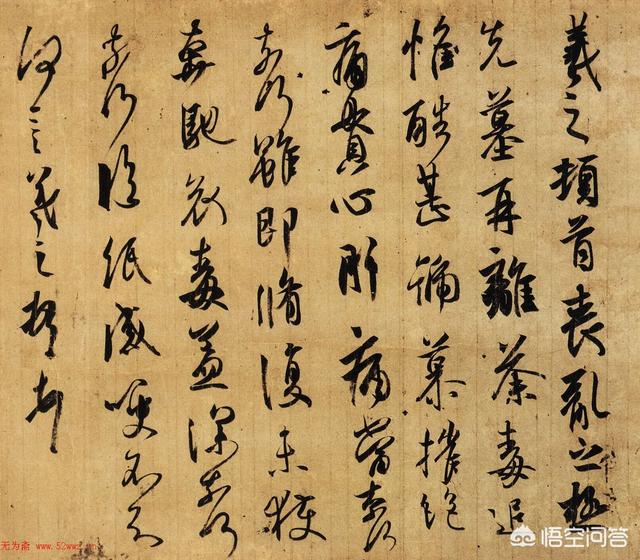 羲之頓首喪亂之極
先墓再離荼毒追
惟酷甚號慕摧絕
痛貫心肝痛當奈何
奈何雖即脩復未獲
奔馳哀毒益深奈何
奈何臨紙感哽不知
何言羲之頓首頓首
无为斋 www.52wwz.cn
悟空问答